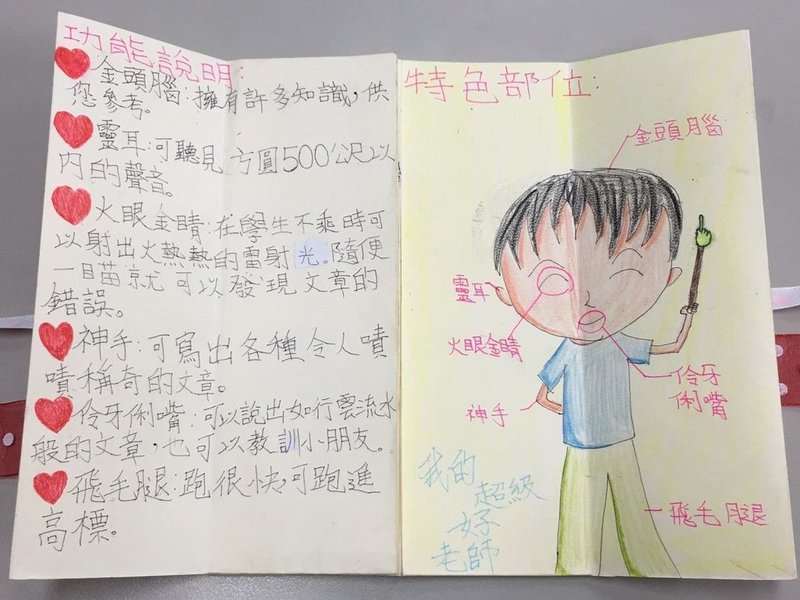 功能說明:
金頭腦:擁有許多知識,供
您參考。
靈耳:可聽見方圓500公尺以
內的聲音。
火眼金睛:在學生不乖時可
以射出火熱熱的雷射光。隨便
一目苗就可以發現文章的
錯誤。
神手:可寫出各種令人嘖
嘖稱奇的文章。
伶牙俐嘴:可以說出如行雲流水
般的文章,也可以教訓小朋友。
飛毛腿:跑很快,可跑進
高標。
特色部位:
金頭腦
靈耳
火眼金睛
神手
伶牙
俐嘴
飛毛腿
我的
超級
好
老師